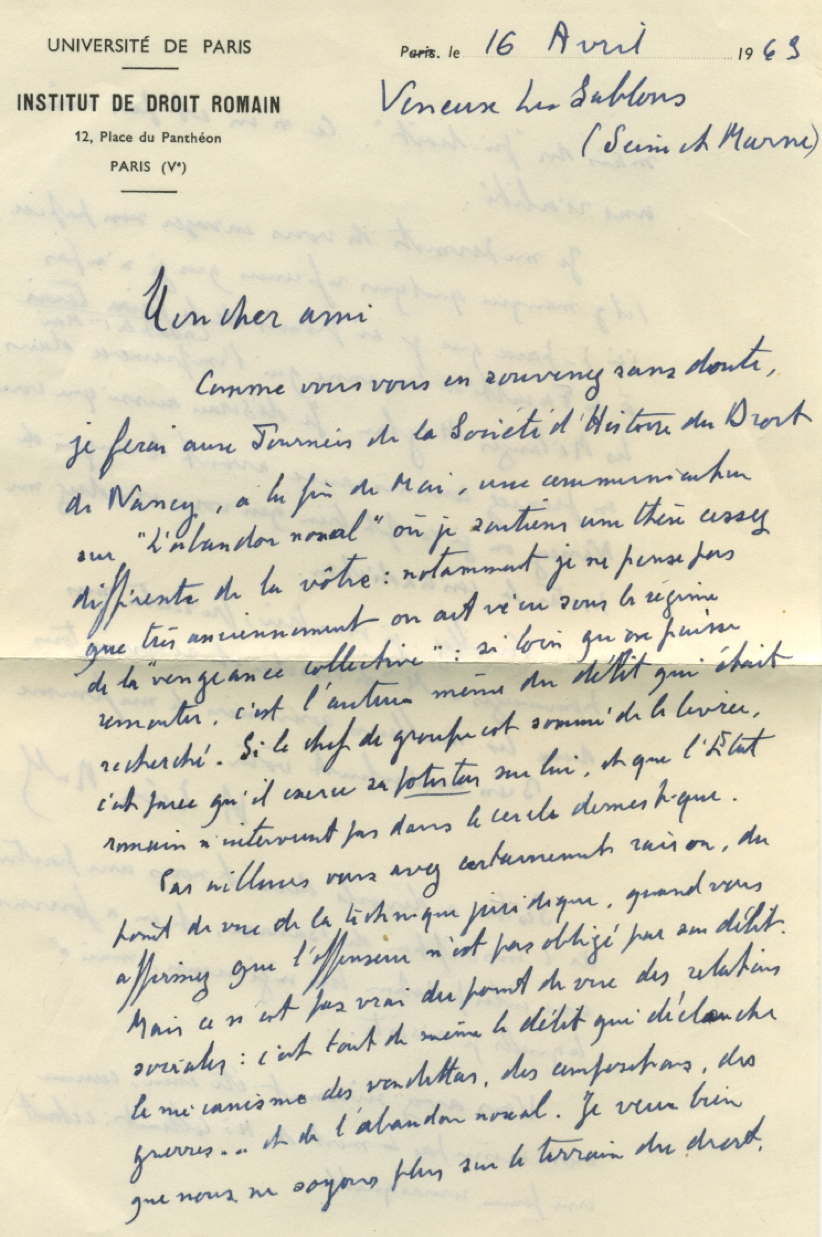 UNIVERSITÉ DE PARIS
INSTITUT DE DROIT ROMAIN
12, Place du Panthéon
PARIS (Vᵉ)
Paris, le 16 Avril 1963
Veneux Les Sablons
(Seine et Marne)
Mon cher ami
Comme vous vous en souvenez sans doute,
je ferai aux Journées de la Société d'Histoire du Droit
de Nancy, à la fin de Mai, une communication
sur "L'abandon noxal" où je soutiens une thèse assez
différente de la vôtre : notamment je ne pense pas
que très anciennement on ait vécu sous le régime
de la "vengeance collective" : si loin qu'on puisse
remonter, c'est l'auteur même du délit qui était
recherché. Si le chef de groupe est sommé de le livrer,
c'est parce qu'il exerce sa potestas sur lui, et que l'État
romain n'intervient pas dans le cercle domestique.
Par ailleurs vous avez certainement raison, du
point de vue de la technique juridique, quand vous
affirmez que l'offenseur n'est pas obligé par son délit.
Mais ce n'est pas vrai du point de vue des relations
sociales : c'est tout de même le délit qui déclanche
le mécanisme des vendettas, des compositions, des
guerres... et de l'abandon noxal. Je veux bien
que nous ne soyons plus sur le terrain du droit,